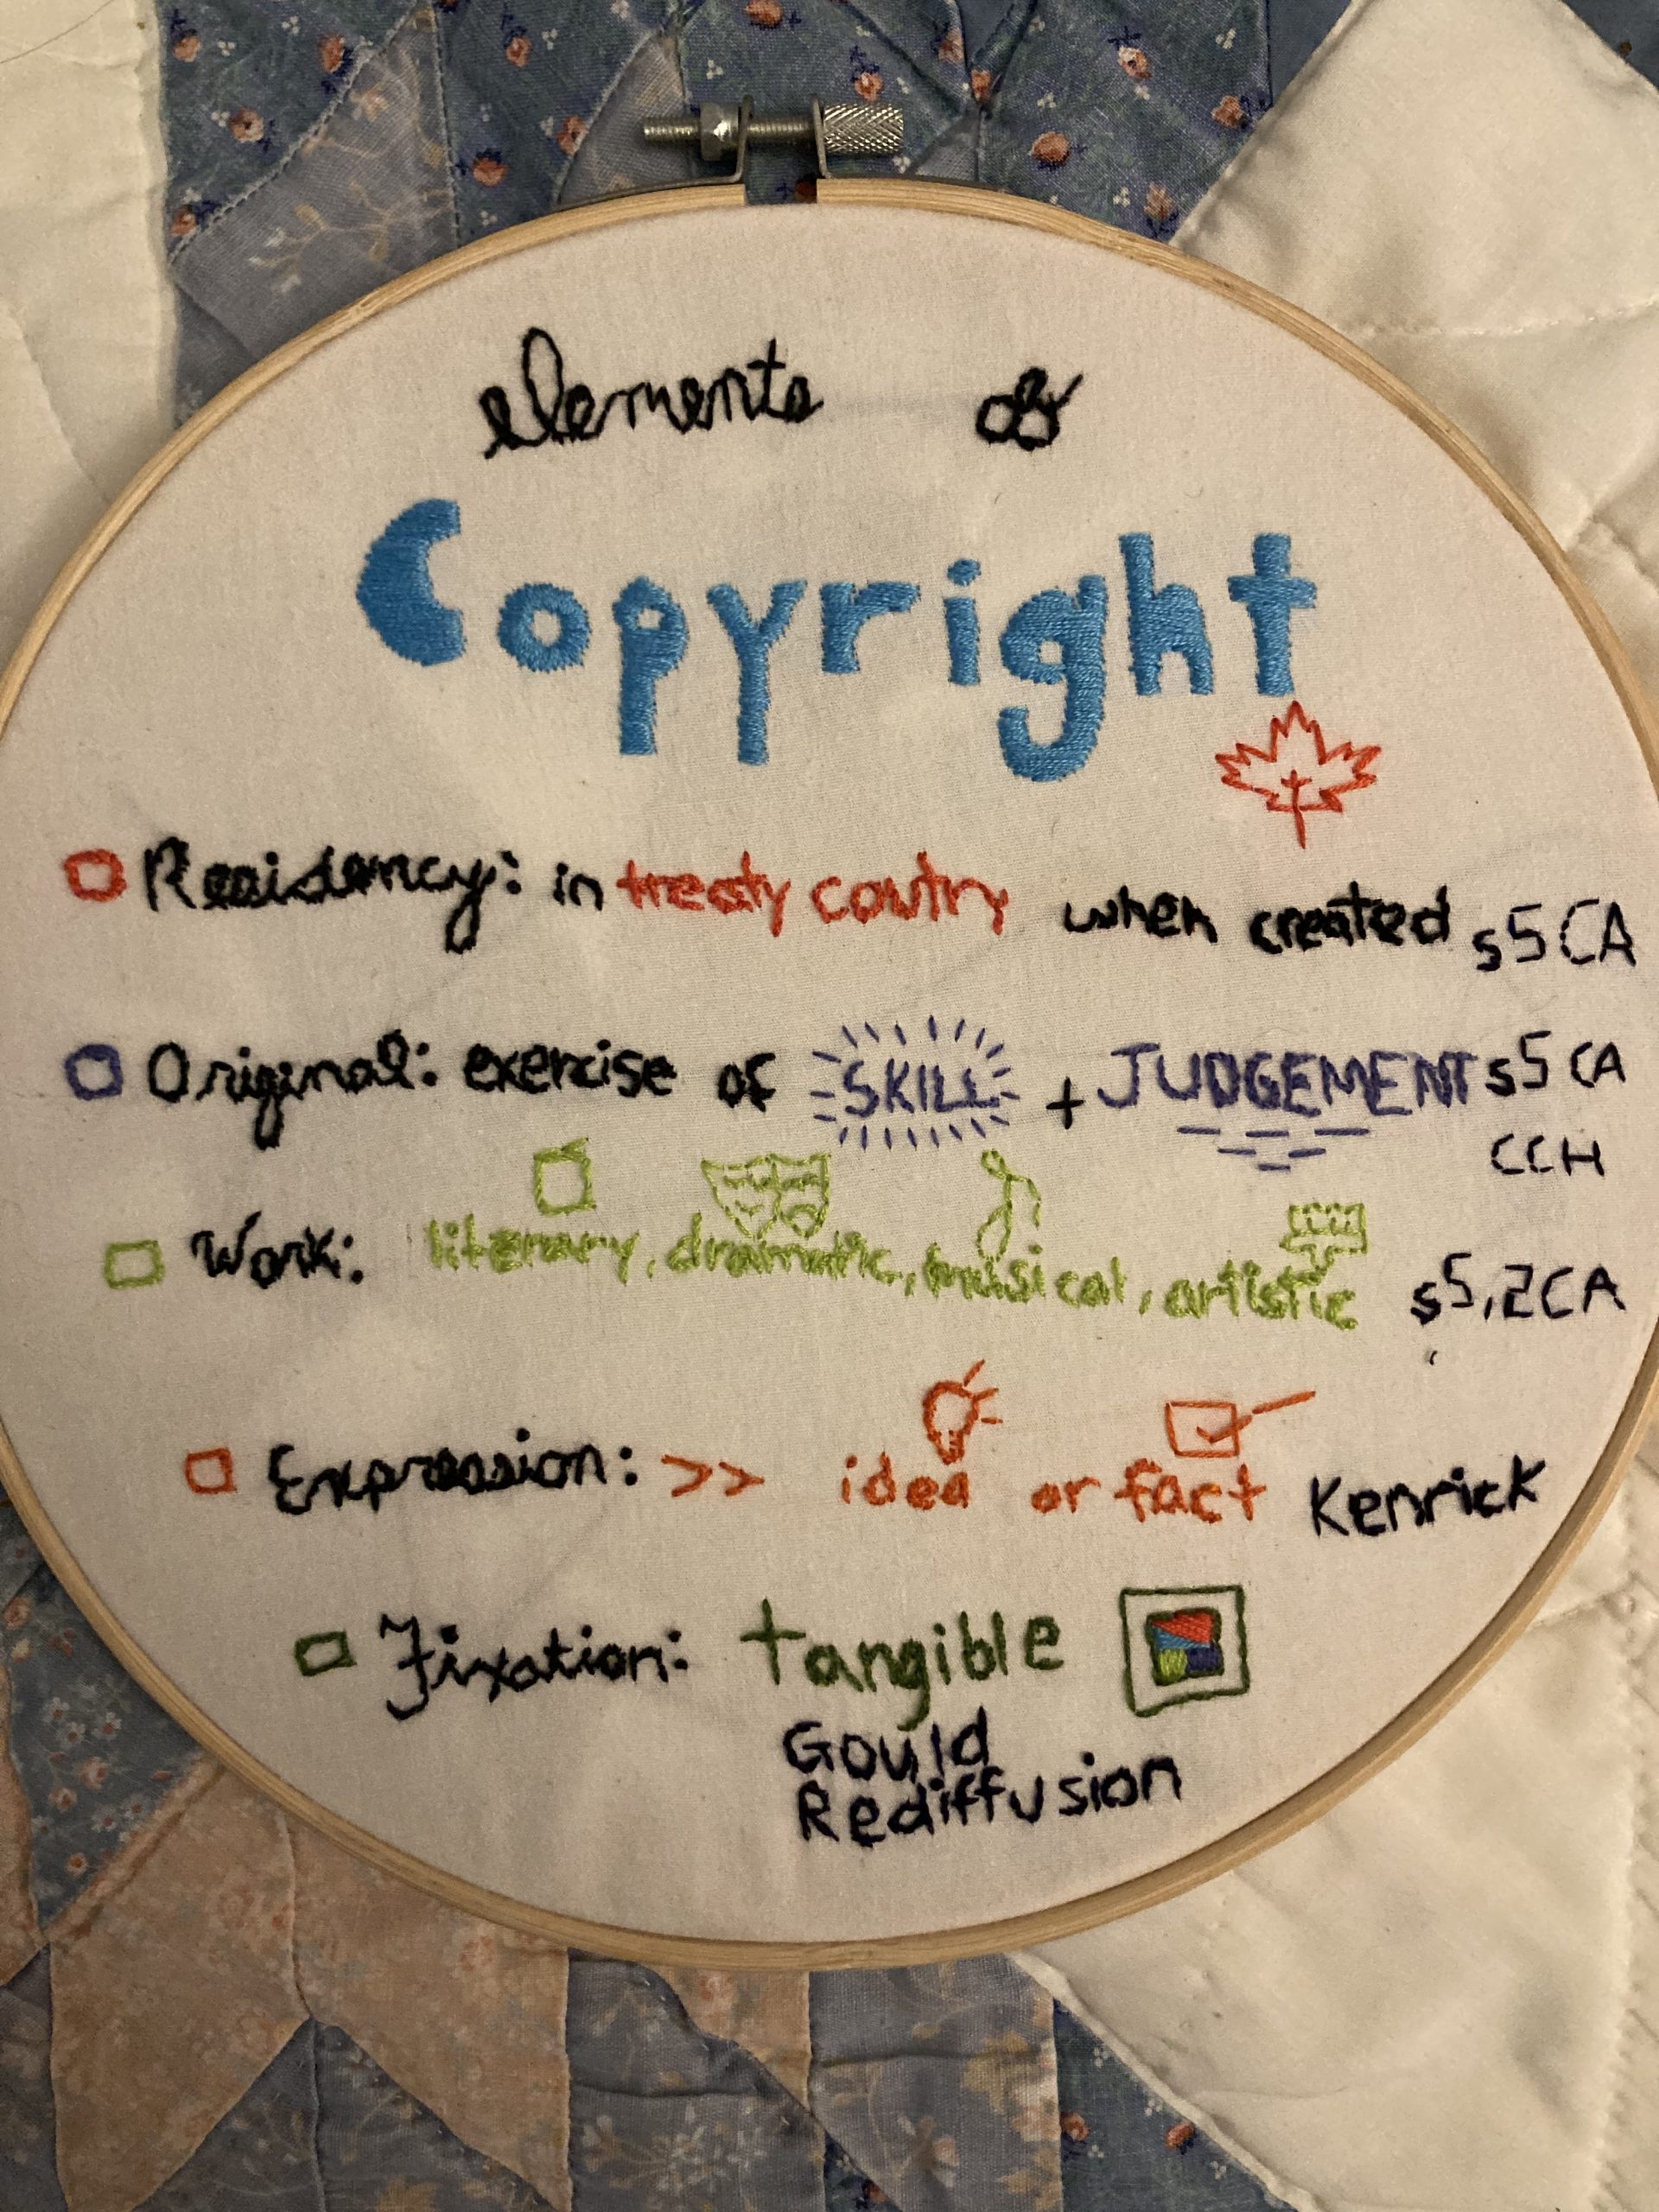 elements of
Copyright
Residency: in treaty coutry when created s5 CA
Original: exercise of SKILL + JUDGEMENT s5 CA
CCH
Work: literary, dramatic, musical, artistic s5,2CA
Expression: >> idea or fact Kenrick
Fixation: tangible
Gould
Rediffusion